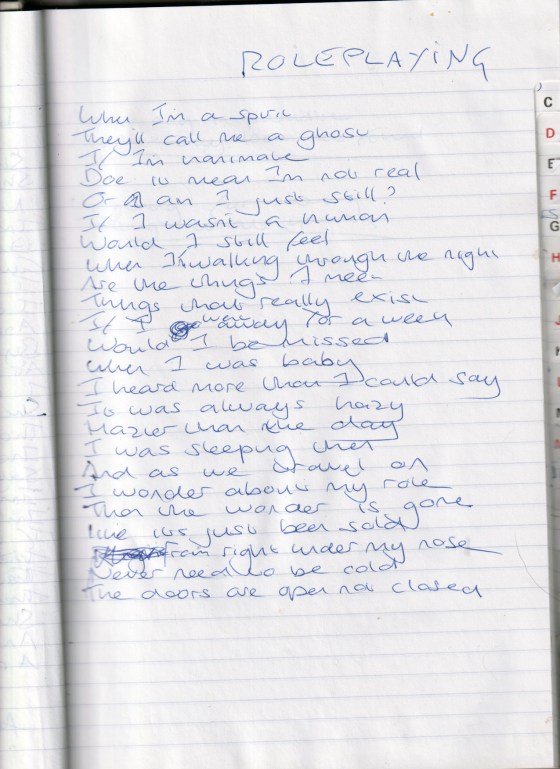 ROLEPLAYING
When I'm a spirit
They'll call me a ghost
If I'm inanimate
Doe it mean I'm not real
Or am I just still?
If I wasn't a human
Would I still feel
When I'm walking through the night
Are the things I meet
Things that really exist
If I went away for a week
Would I be missed
When I was baby
I heard more than I could say
It was always hazy
Hazier than the day
I was sleeping then
And as we travel on
I wonder about my role
Than the wonder is gone
Like its just been sold
From right under my nose
Never need to be cold
The doors are open not closed
C
D
E
F
G
H
J